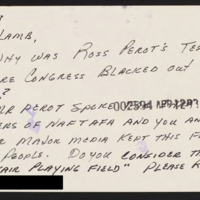 LAMB,
WHY WAS ROSS PEROT'S TES
RE CONGRESS BLACKED OUT
?
MR PEROT SPOKE
002594
ERS OF NAFTA FA AND YOU AN
R MAJOR MEDIA KEPT THIS F
PEOPLE. DO YOU CONSIDER TH
AIR PLAYING FIELD" PLEASE R